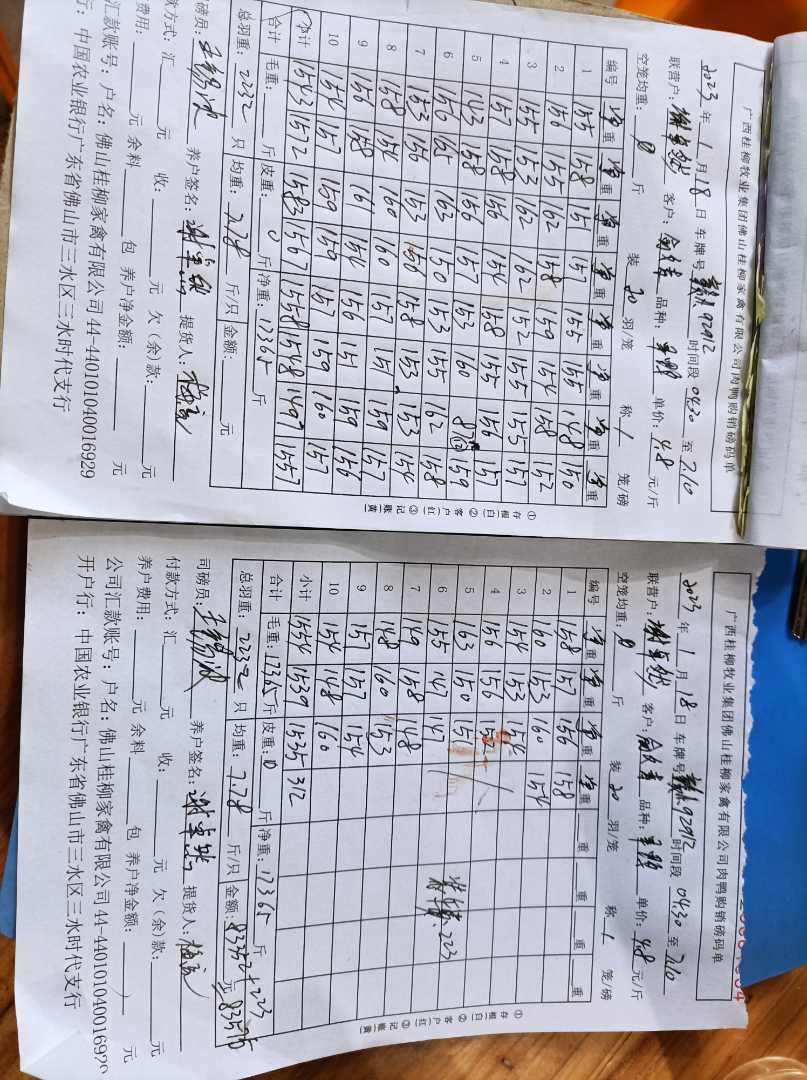 广西桂柳牧业集团佛山桂柳家禽有限公司肉鸭购销磅码单
2023 年 1 月 18 日 车牌号 92912 时间段 0430 至 710
联营户: 客户: 品种: 单价: 4.8 元/斤
空笼均重: 0 斤 装 20 羽/笼 称 1 笼/磅
编号 净重 净重 净重 净重 净重 净重 净重 净重
1 155 158 151 157 155 155 148 150
2 156 155 162 158 159 154 158 152
3 155 153 162 162 152 155 155 157
4 157 158 156 154 158 155 156 157
5 143 158 156 157 153 160 87⑫ 159
6 156 165 163 150 153 155 162 158
7 153 156 153 156 158 153 153 154
8 158 154 160 160 157 151 159 157
9 156 158 161 154 156 151 159 156
10 154 157 159 159 157 159 160 157
小计 1543 1572 1583 1567 1558 1548 1497 1557
合计 毛重: 斤 皮重: 0 斤 净重: 17365 斤
总羽重: 2232 只 均重: 7.78 斤/只 金额: 元
司磅员: 养户签名: 提货人:
付款方式: 汇 元 收: 元 欠(余)款: 元
费用: 元 余料 包 养户净金额: 元
汇款账号: 户名: 佛山桂柳家禽有限公司 44-440101040016929
行: 中国农业银行广东省佛山市三水区三水时代支行
①存根(白) ②客户(红) ③记账(黄)
广西桂柳牧业集团佛山桂柳家禽有限公司肉鸭购销磅码单
2023 年 1 月 18 日 车牌号 92912 时间段 0430 至 710
联营户: 客户: 品种: 单价: 4.8 元/斤
空笼均重: 0 斤 装 20 羽/笼 称 1 笼/磅
编号 净重 净重 净重 净重 重 重 重 重
1 158 157 156 158
2 160 153 160 154
3 154 153 154
4 156 156 152
5 163 150 151
6 155 147 147
7 149 158 148
8 148 160 153
9 157 157 154
10 154 148 160
小计 1554 1539 1535 312
223
合计 毛重: 17365 斤 皮重: 0 斤 净重: 17365 斤
总羽重: 2232 只 均重: 7.78 斤/只 金额: 83352+223 元
=83575
司磅员: 养户签名: 提货人:
付款方式: 汇 元 收: 元 欠(余)款: 元
养户费用: 元 余料 包 养户净金额: 元
公司汇款账号: 户名: 佛山桂柳家禽有限公司 44-440101040016929
开户行: 中国农业银行广东省佛山市三水区三水时代支行
①存根(白) ②客户(红) ③记账(黄)